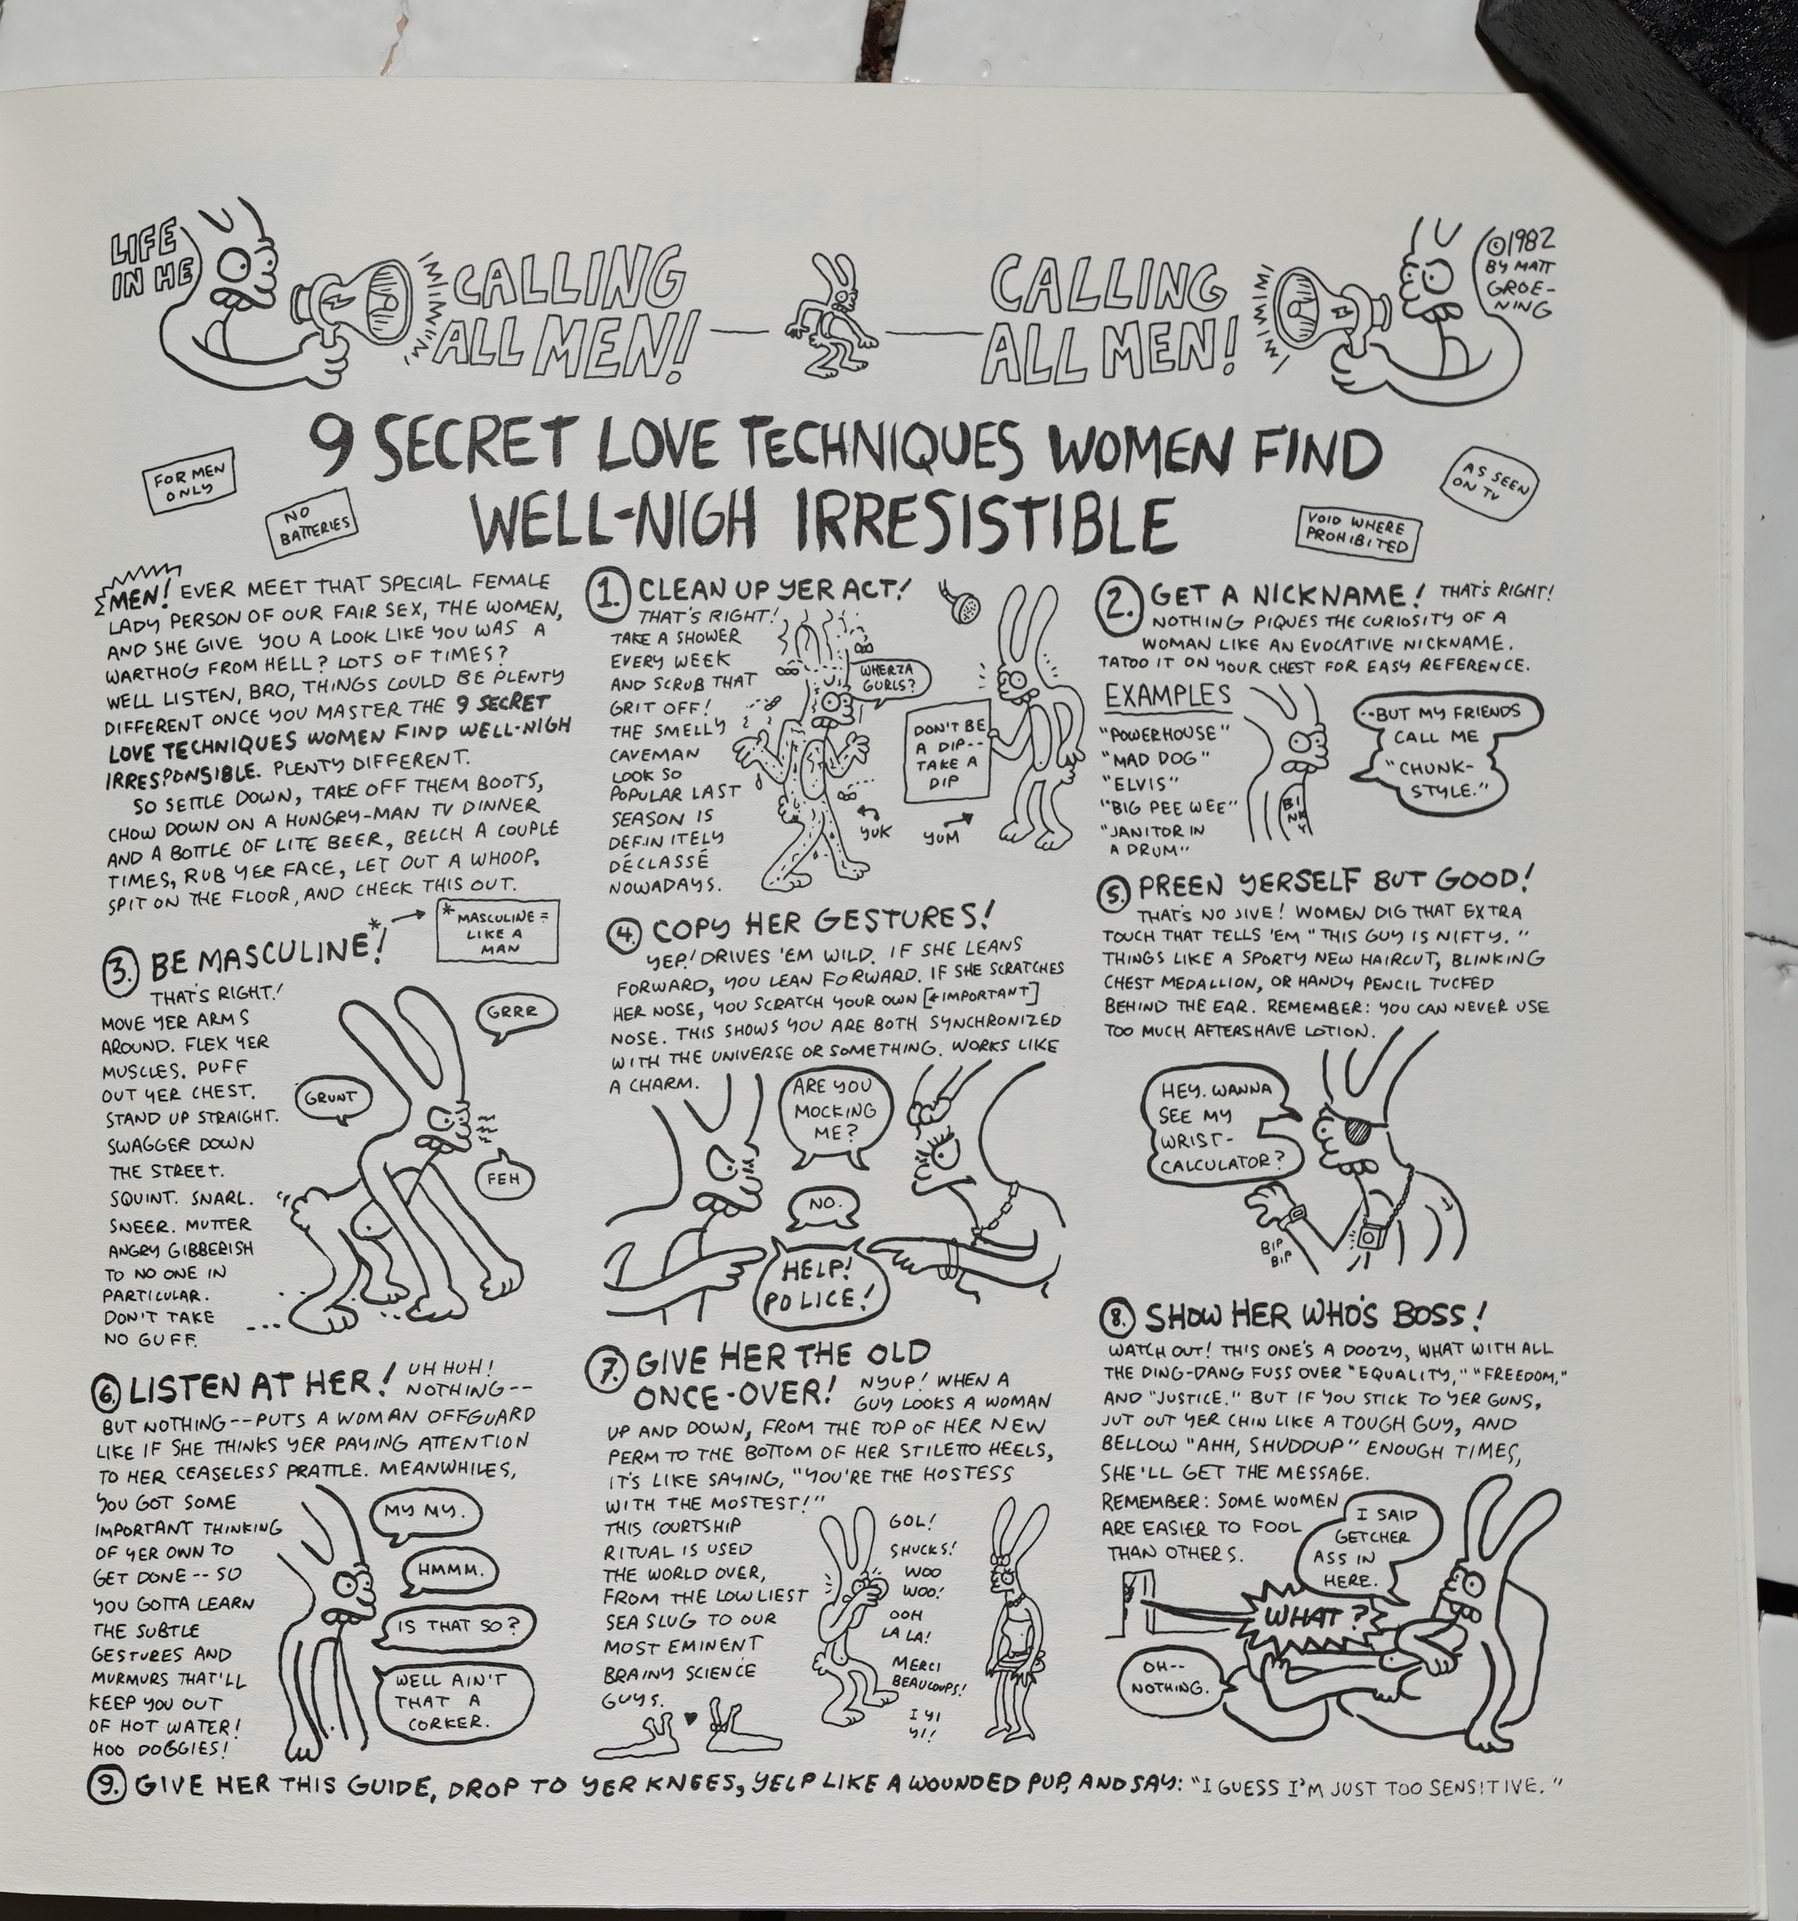 LIFE
IN HE
CALLING
ALL MEN!
CALLING
ALL MEN!
©1982
BY MATT
GROE-
NING
9 SECRET LOVE TECHNIQUES WOMEN FIND
WELL-NIGH IRRESISTIBLE
FOR MEN
ONLY
NO
BATTERIES
VOID WHERE
PROHIBITED
AS SEEN
ON TV
MEN! EVER MEET THAT SPECIAL FEMALE
LADY PERSON OF OUR FAIR SEX, THE WOMEN,
AND SHE GIVE YOU A LOOK LIKE YOU WAS A
WARTHOG FROM HELL? LOTS OF TIMES?
WELL LISTEN, BRO, THINGS COULD BE PLENTY
DIFFERENT ONCE YOU MASTER THE 9 SECRET
LOVE TECHNIQUES WOMEN FIND WELL-NIGH
IRRESPONSIBLE. PLENTY DIFFERENT.
SO SETTLE DOWN, TAKE OFF THEM BOOTS,
CHOW DOWN ON A HUNGRY-MAN TV DINNER
AND A BOTTLE OF LITE BEER, BELCH A COUPLE
TIMES, RUB YER FACE, LET OUT A WHOOP,
SPIT ON THE FLOOR, AND CHECK THIS OUT.
1. CLEAN UP YER ACT!
THAT'S RIGHT!
TAKE A SHOWER
EVERY WEEK
AND SCRUB THAT
GRIT OFF!
THE SMELLY
CAVEMAN
LOOK SO
POPULAR LAST
SEASON IS
DEFINITELY
DÉCLASSÉ
NOWADAYS.
WHERZA
GURLS?
YUK
DON'T BE
A DIP--
TAKE A
DIP
YUM
2. GET A NICKNAME! THAT'S RIGHT!
NOTHING PIQUES THE CURIOSITY OF A
WOMAN LIKE AN EVOCATIVE NICKNAME.
TATOO IT ON YOUR CHEST FOR EASY REFERENCE.
EXAMPLES
"POWERHOUSE"
"MAD DOG"
"ELVIS"
"BIG PEE WEE"
"JANITOR IN
A DRUM"
BI
NK
Y
--BUT MY FRIENDS
CALL ME
"CHUNK-
STYLE."
3. BE MASCULINE!*
* MASCULINE =
LIKE A
MAN
THAT'S RIGHT!
MOVE YER ARMS
AROUND. FLEX YER
MUSCLES. PUFF
OUT YER CHEST.
STAND UP STRAIGHT.
SWAGGER DOWN
THE STREET.
SQUINT. SNARL.
SNEER. MUTTER
ANGRY GIBBERISH
TO NO ONE IN
PARTICULAR.
DON'T TAKE
NO GUFF.
GRRR
GRUNT
FEH
4. COPY HER GESTURES!
YEP! DRIVES 'EM WILD. IF SHE LEANS
FORWARD, YOU LEAN FORWARD. IF SHE SCRATCHES
HER NOSE, YOU SCRATCH YOUR OWN [←IMPORTANT]
NOSE. THIS SHOWS YOU ARE BOTH SYNCHRONIZED
WITH THE UNIVERSE OR SOMETHING. WORKS LIKE
A CHARM.
ARE YOU
MOCKING
ME?
NO.
HELP!
POLICE!
5. PREEN YERSELF BUT GOOD!
THAT'S NO JIVE! WOMEN DIG THAT EXTRA
TOUCH THAT TELLS 'EM "THIS GUY IS NIFTY."
THINGS LIKE A SPORTY NEW HAIRCUT, BLINKING
CHEST MEDALLION, OR HANDY PENCIL TUCKED
BEHIND THE EAR. REMEMBER: YOU CAN NEVER USE
TOO MUCH AFTERSHAVE LOTION.
HEY. WANNA
SEE MY
WRIST-
CALCULATOR?
BIP
BIP
6. LISTEN AT HER! UH HUH!
NOTHING--
BUT NOTHING--PUTS A WOMAN OFFGUARD
LIKE IF SHE THINKS YER PAYING ATTENTION
TO HER CEASELESS PRATTLE. MEANWHILES,
YOU GOT SOME
IMPORTANT THINKING
OF YER OWN TO
GET DONE -- SO
YOU GOTTA LEARN
THE SUBTLE
GESTURES AND
MURMURS THAT'LL
KEEP YOU OUT
OF HOT WATER!
HOO DOGGIES!
MY MY.
HMMM.
IS THAT SO?
WELL AIN'T
THAT A
CORKER.
7. GIVE HER THE OLD
ONCE-OVER! NYUP! WHEN A
GUY LOOKS A WOMAN
UP AND DOWN, FROM THE TOP OF HER NEW
PERM TO THE BOTTOM OF HER STILETTO HEELS,
IT'S LIKE SAYING, "YOU'RE THE HOSTESS
WITH THE MOSTEST!"
THIS COURTSHIP
RITUAL IS USED
THE WORLD OVER,
FROM THE LOWLIEST
SEA SLUG TO OUR
MOST EMINENT
BRAINY SCIENCE
GUYS.
GOL!
SHUCKS!
WOO
WOO!
OOH
LA LA!
MERCI
BEAUCOUPS!
I YI
YI!
8. SHOW HER WHO'S BOSS!
WATCH OUT! THIS ONE'S A DOOZY, WHAT WITH ALL
THE DING-DANG FUSS OVER "EQUALITY," "FREEDOM,"
AND "JUSTICE." BUT IF YOU STICK TO YER GUNS,
JUT OUT YER CHIN LIKE A TOUGH GUY, AND
BELLOW "AHH, SHUDDUP" ENOUGH TIMES,
SHE'LL GET THE MESSAGE.
REMEMBER: SOME WOMEN
ARE EASIER TO FOOL
THAN OTHERS.
I SAID
GETCHER
ASS IN
HERE.
WHAT?
OH--
NOTHING.
9. GIVE HER THIS GUIDE, DROP TO YER KNEES, YELP LIKE A WOUNDED PUP, AND SAY: "I GUESS I'M JUST TOO SENSITIVE."